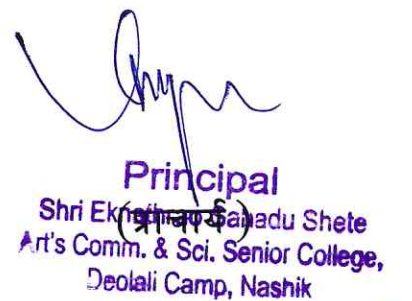 Principal
(प्राचार्य)
Shri Eknathrao Sahadu Shete
Art's Comm. & Sci. Senior College,
Deolali Camp, Nashik